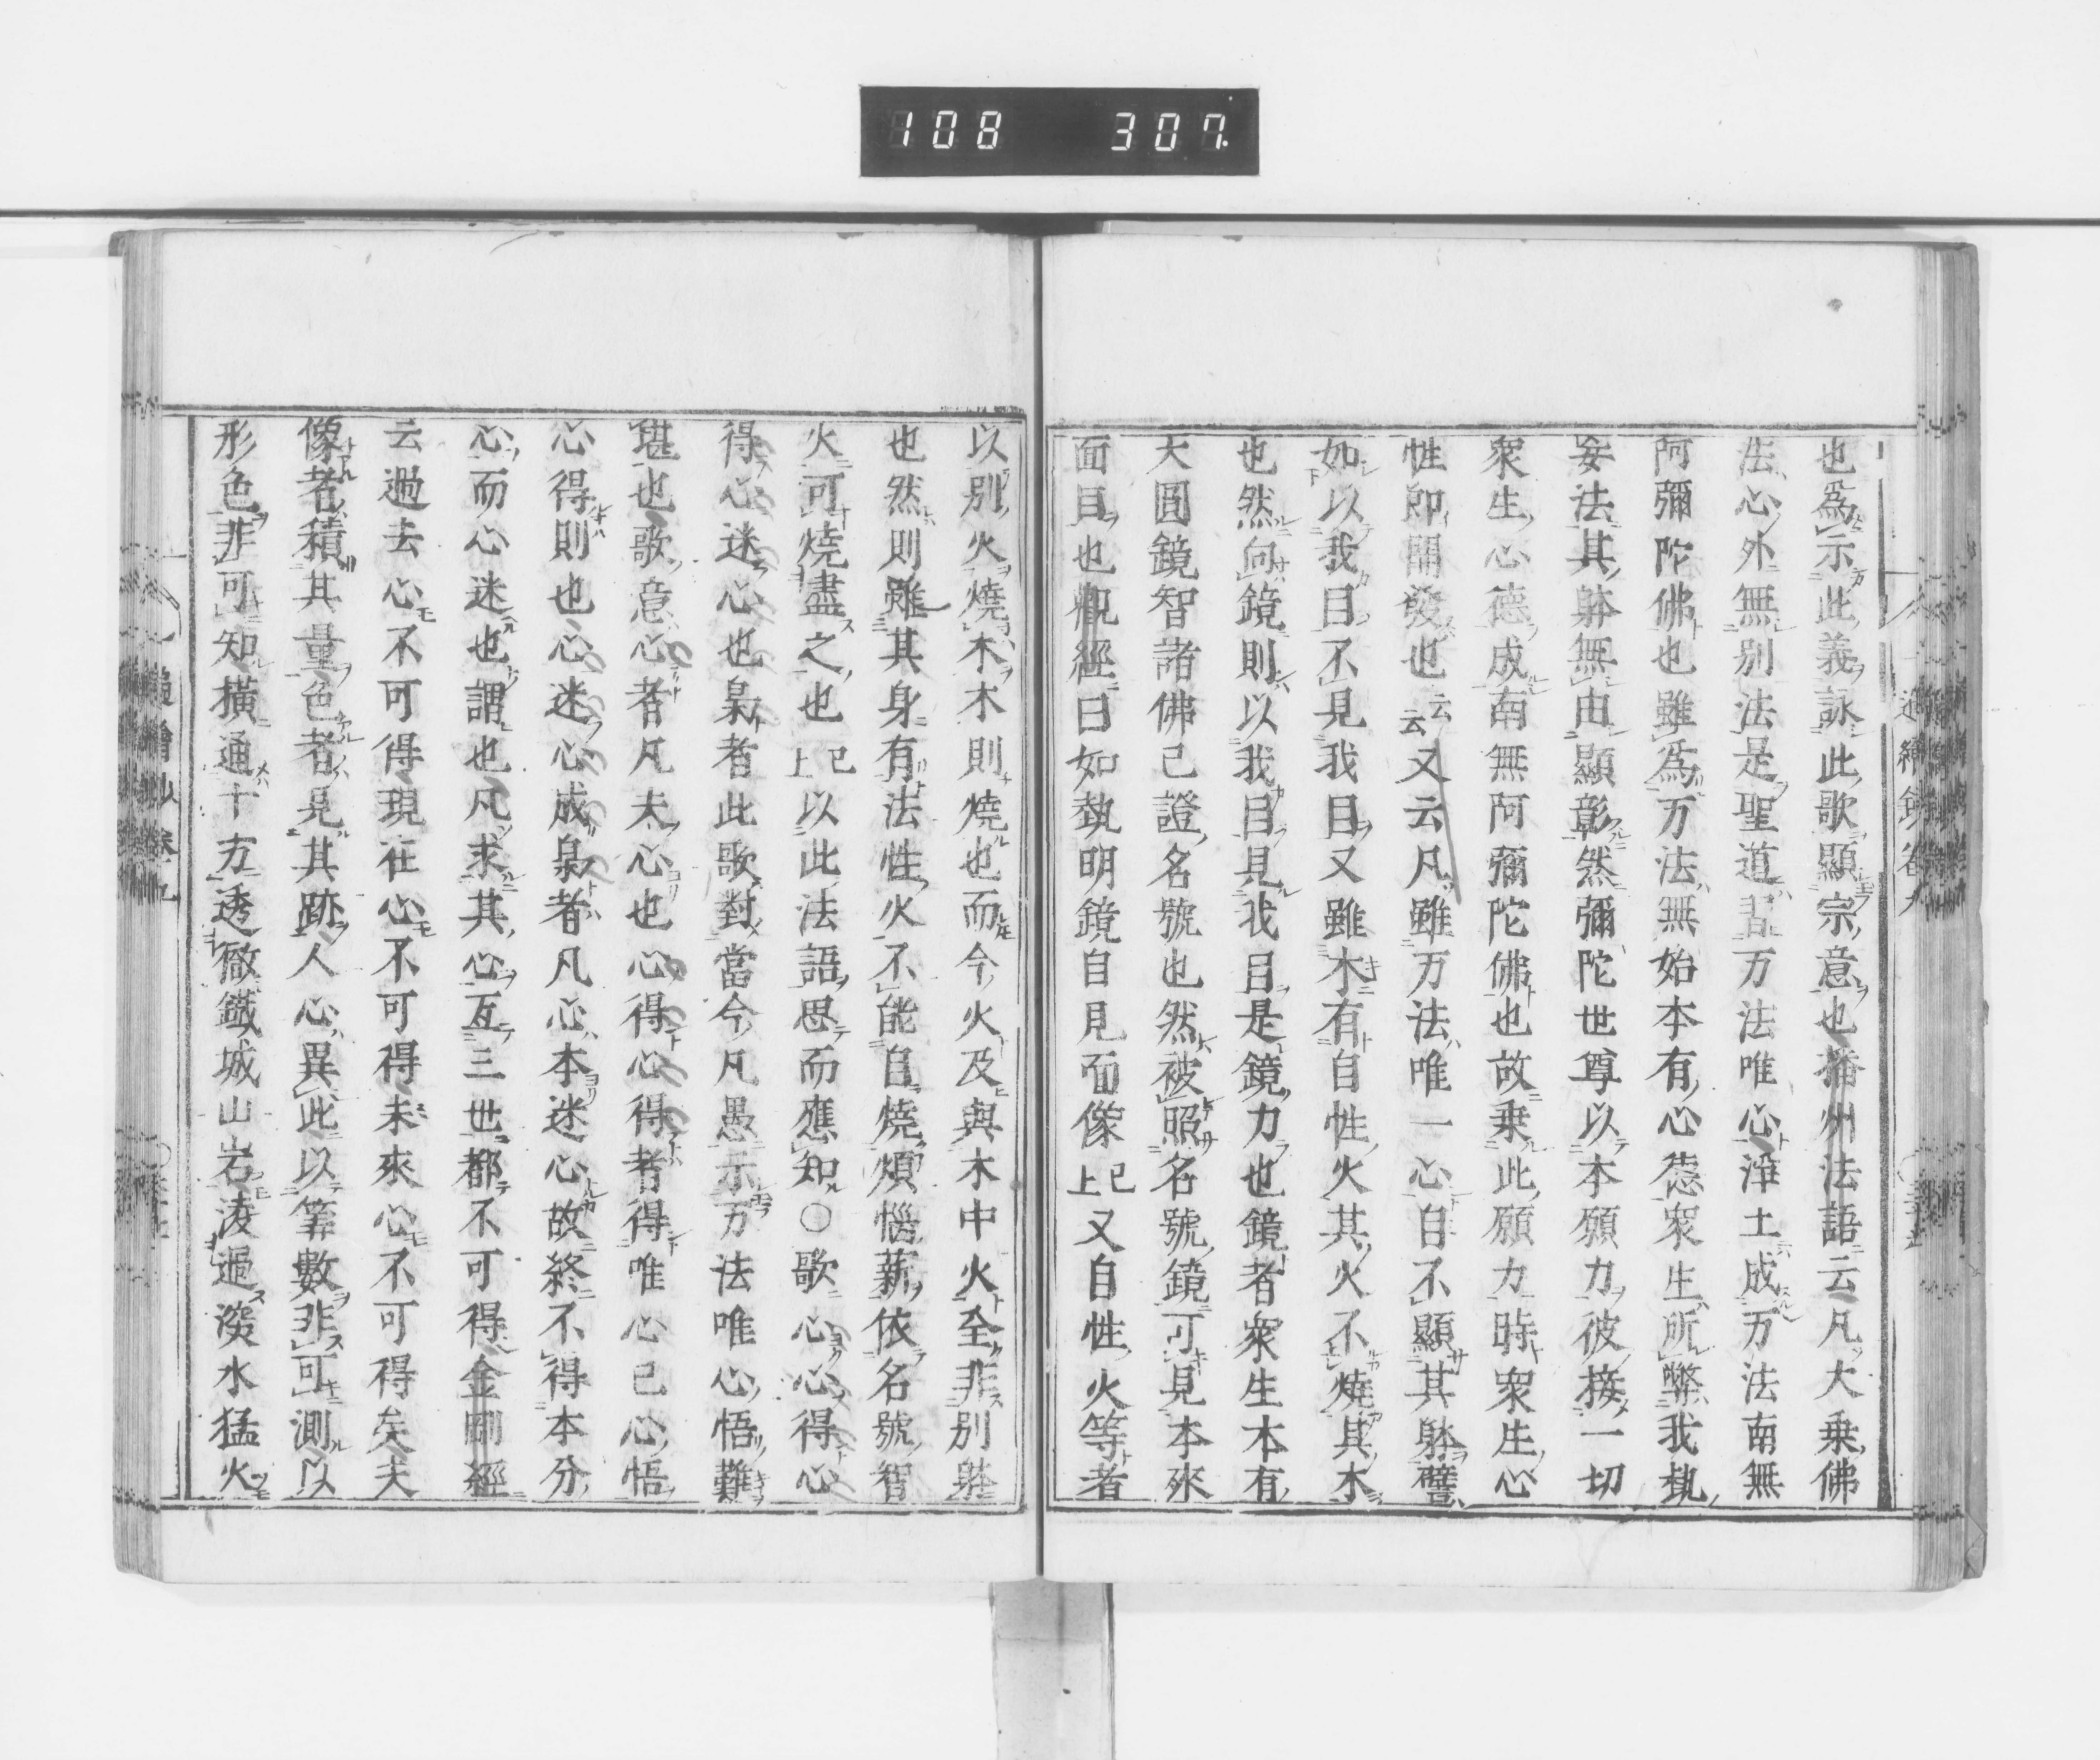 108 307
也爲示此義詠此歌顯宗意也播州法語云凡大乗佛
法心外無別法是聖道習万法唯心淨土成万法南無
阿彌陀佛也雖爲万法無始本有心德衆生所弊我執
妄法其躰無由顯彰然彌陀世尊以本願力彼接一切
衆生心德成南無阿彌陀佛也故乗此願力時衆生心
性即開發也云云又云凡雖万法唯一心自不顯其躰譬
如以我目不見我目又雖木有自性火其火不燒其木
也然向鏡則以我目見我目是鏡力也鏡者衆生本有
大圓鏡智諸佛己證名號也然被照名號鏡可見本來
面目也觀經曰如執明鏡自見面像已上又自性火等者
以別火燒木木則燒也而今火及與木中火全非別躰
也然則雖其身有法性火不能自燒煩惱薪依名號智
火可燒盡之也已上以此法語思而應知○歌心心得心
得心迷心也梟者此歌對當今凡愚示万法唯心悟難
堪也歌意心者凡夫心也心得心得者得唯心己心悟
心得則也心迷心成梟者凡心本迷心故終不得本分
心而心迷也謂也凡求其心亙三世都不可得金剛經
云過去心不可得現在心不可得未來心不可得矣夫
像者積其量色者見其跡人心異此以筭數非可測以
形色非可知橫通十方透徹鐵城山岩淩過深水猛火